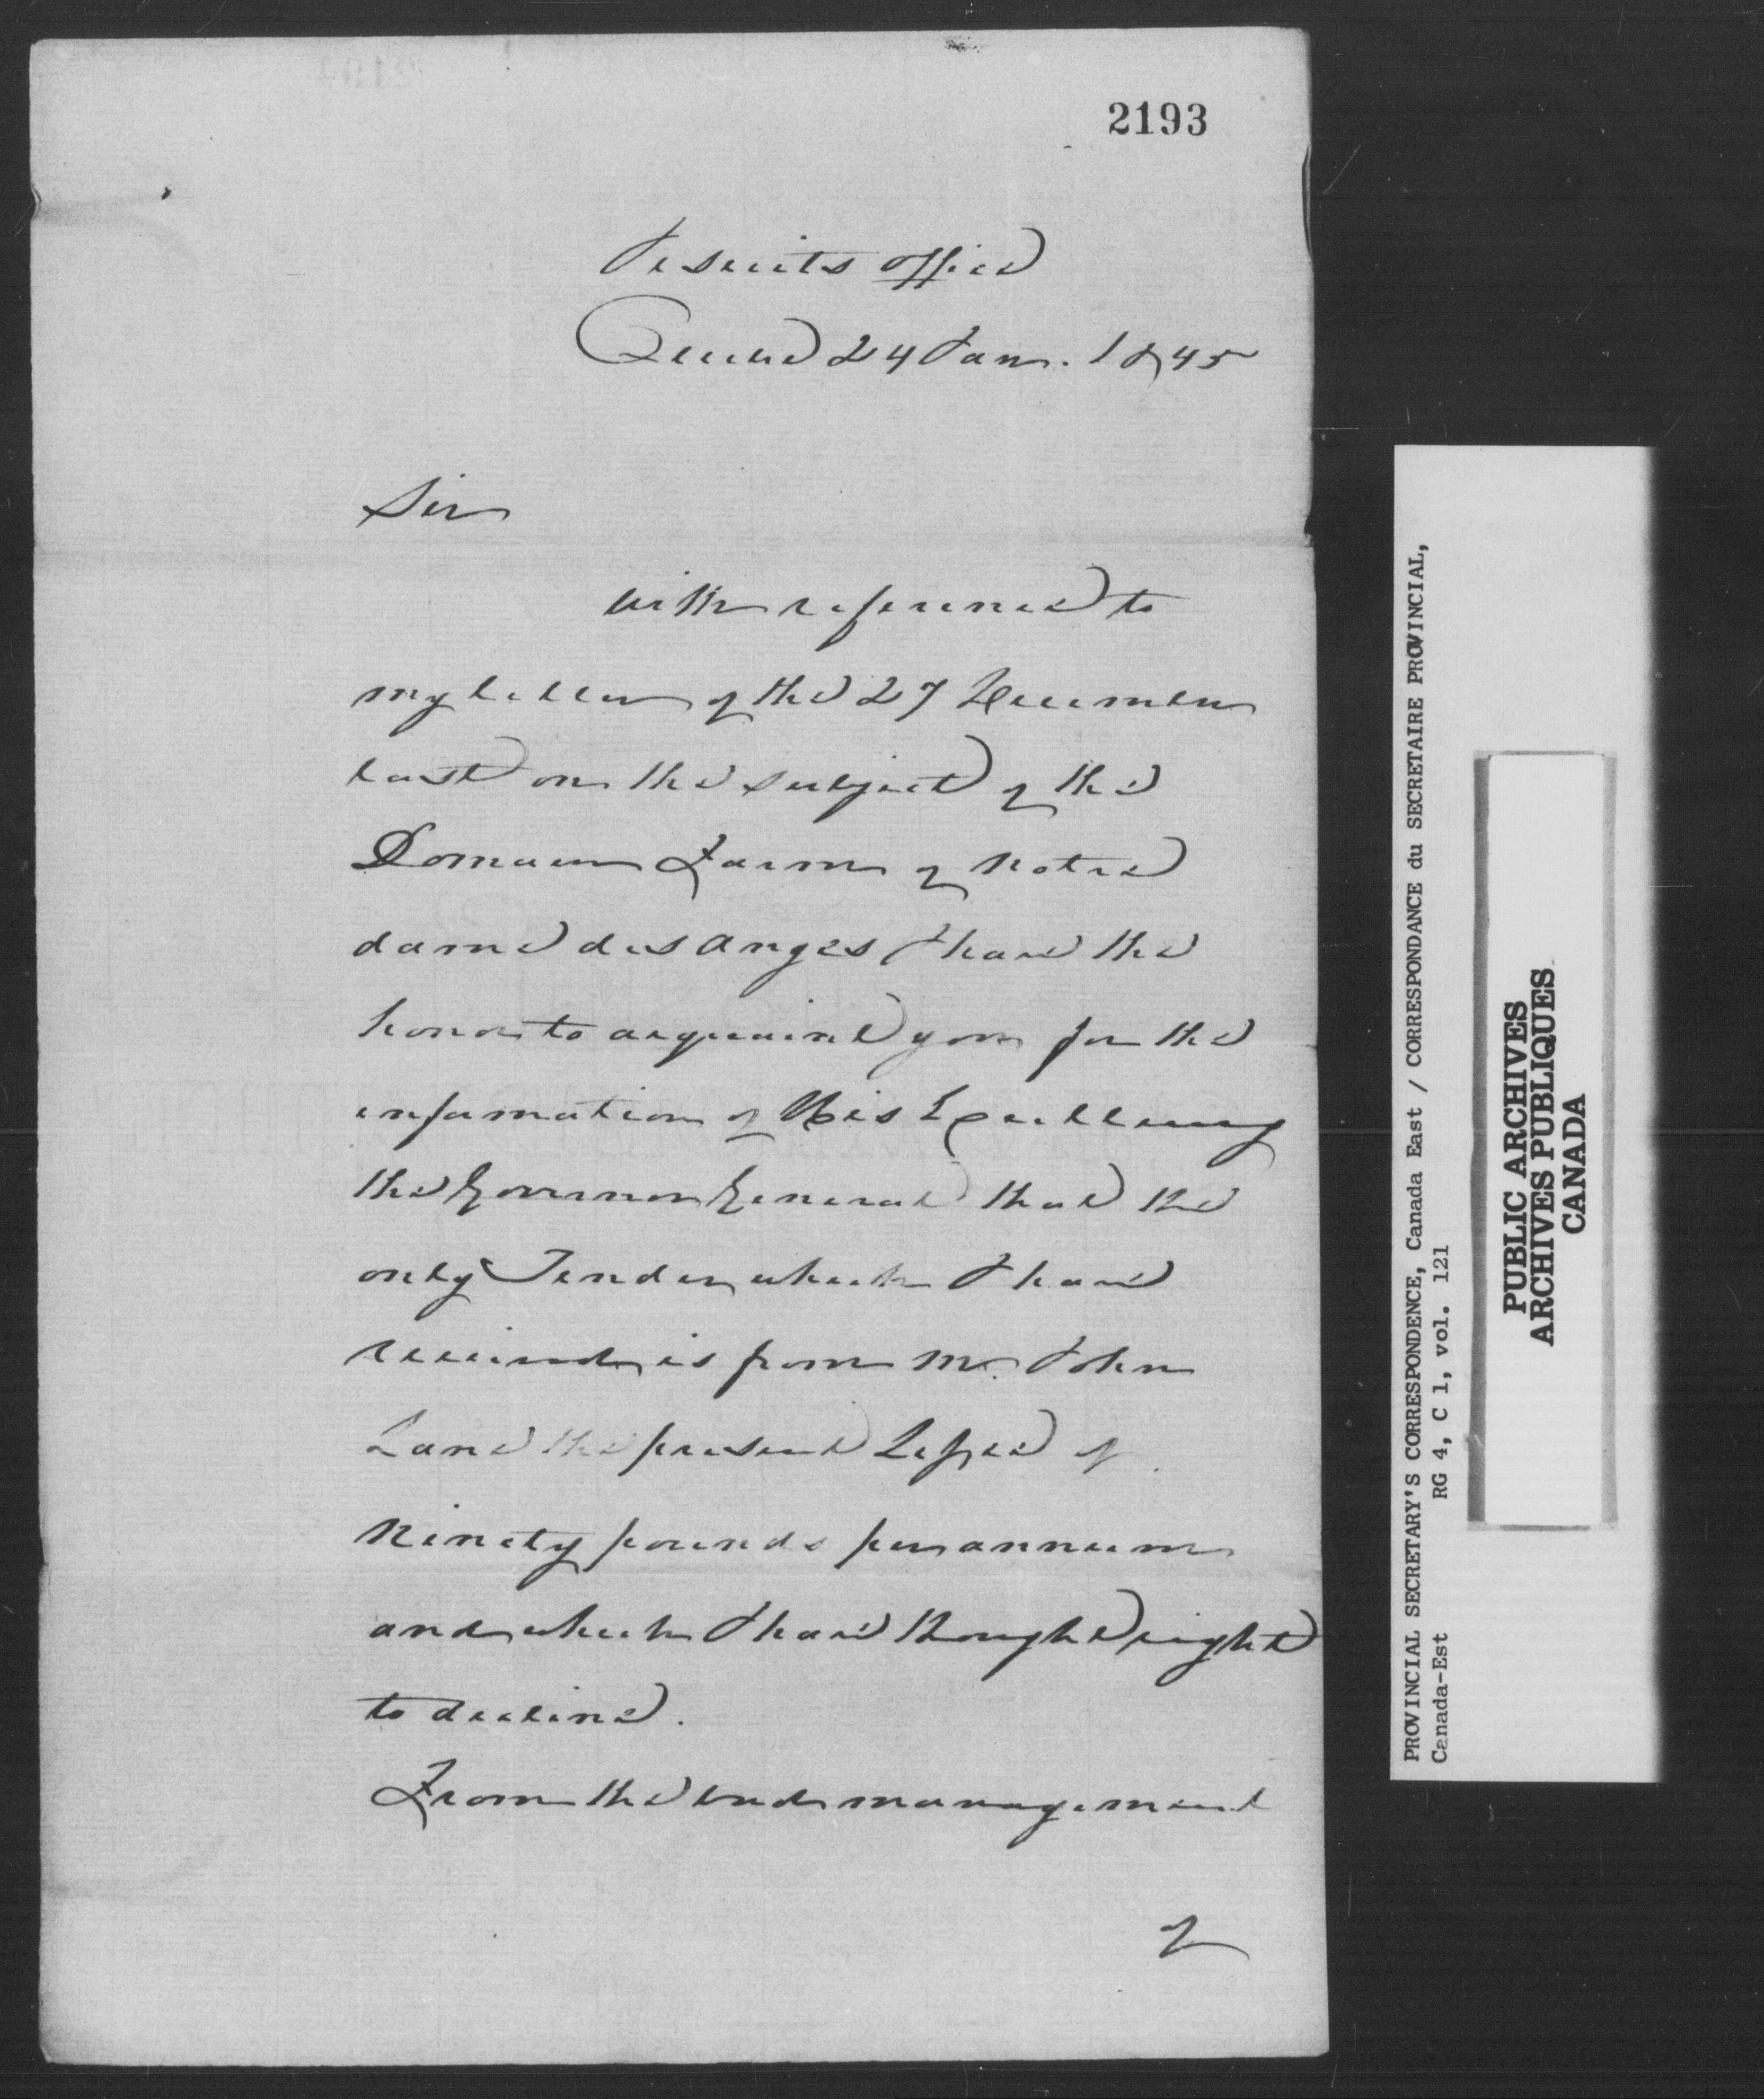 2193
Jesuits office
Quebec 24 Jan. 1845
Sir
With reference to
my letter of the 27 December
last on the subject of the
Domain Farm of Notre
dame des Anges I have the
honor to acquaint you for the
information of His Excellency
the Governor General that the
only Tender which I have
received is from Mr. John
Lane the present Lessee of
Ninety pounds per annum
and which I have thought right
to decline.
From the bad management
of
PROVINCIAL SECRETARY'S CORRESPONDENCE, Canada East / CORRESPONDANCE du SECRETAIRE PROVINCIAL,
Canada-Est RG 4, C 1, vol. 121
PUBLIC ARCHIVES
ARCHIVES PUBLIQUES
CANADA